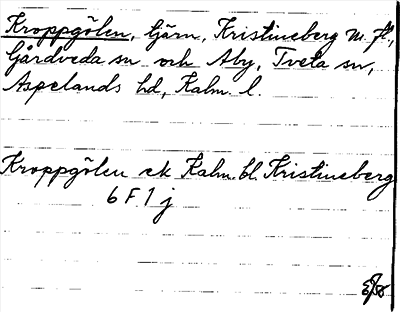 Kroppgölen, tjärn, Kristineberg m. fl.,
Gårdveda sn och Åby, Tveta sn,
Aspelands hd, Kalm. l.
Kroppgölen ek Kalm. bl. Kristineberg
6 F 1 j